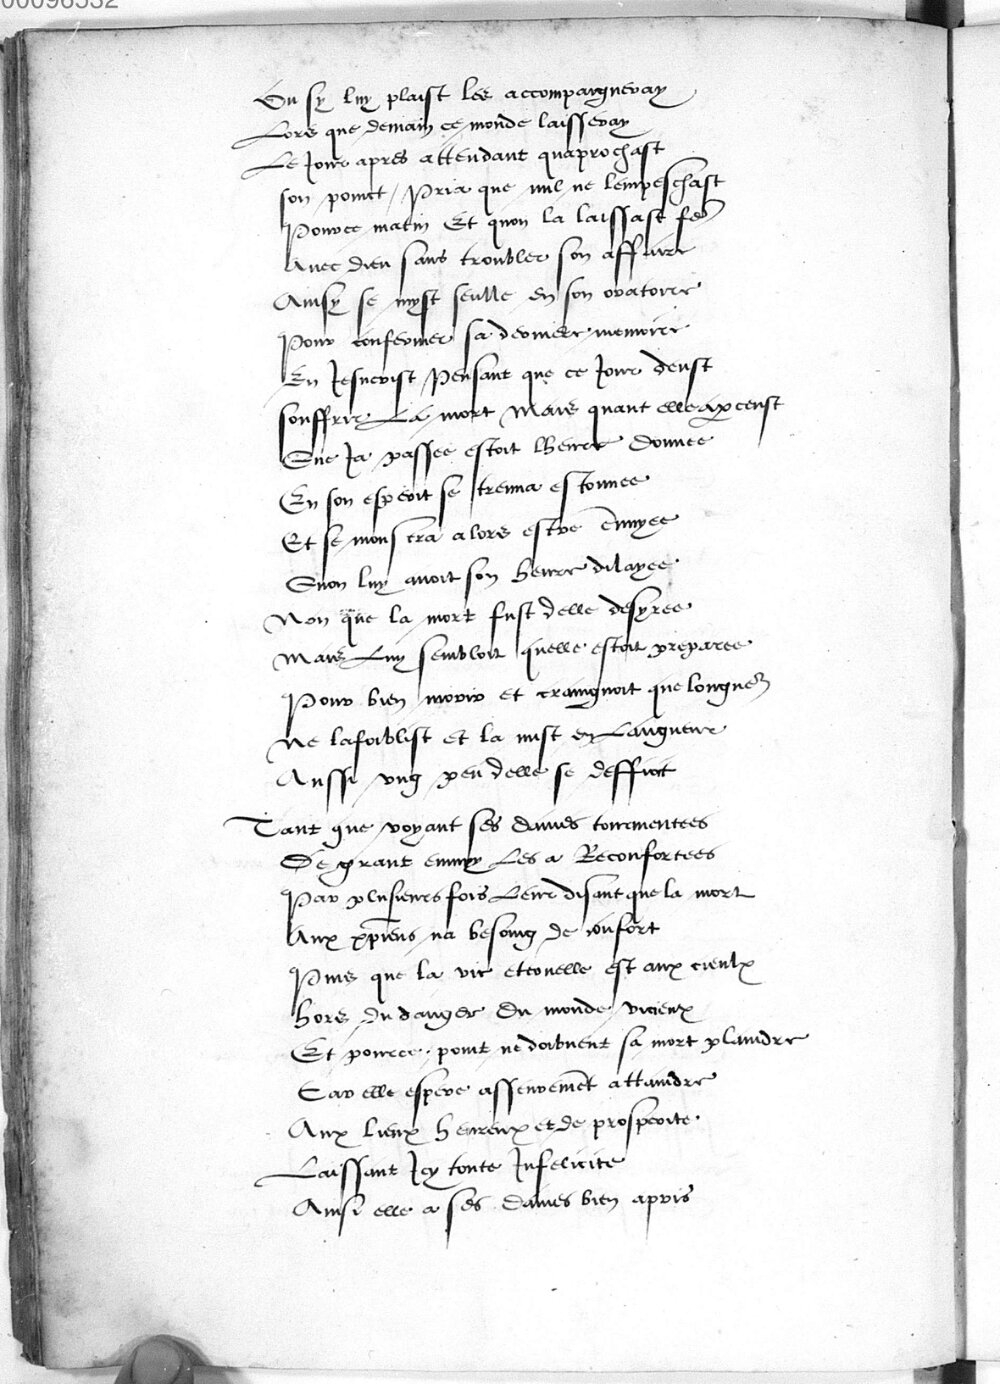 00096552
Ou sy luy plaist les accompaigneray
Lors que demain ce monde laisseray
Le Jour apres attendant quaprochast
son poinct / Pria que nul ne lempeschast
Pource matin Et quon la laissast
Avec dieu sans troubler son affaire
Ainsy se myst seulle en son oratoire
Pour confermer sa derniere memoire
En Jesucrist Pensant que ce Jour deust
souffrir La mort Mais quant elle apceust
Que Ja passee estoit lheure donnee
En son esperit se trouva estonnee
Et se monstra alors estre ennuyee
Quon luy avoit son heure dilayee
Non que la mort fust delle desyree
Mais Luy sembloit quelle estoit preparee
Pour bien morir et craingnoit que longueur
Ne lafoiblist et la mist en Langueur
Aussi ung peu delle se deffioit
Tant que voyant ses dames tourmentees
De grant ennuy Les a Reconfortees
Par plusieurs fois Leur disant que la mort
Aux xpiens na besoing de confort
Puis que la vie eternelle est aux cieulx
hors du danger du monde vicieux
Et pource point ne doibvent sa mort plaindre
Car elle espere asseurement attaindre
Aux lieux heureux et de prosperite
Laissant Icy toute Infelicite
Ainsi elle a ses dames bien apris